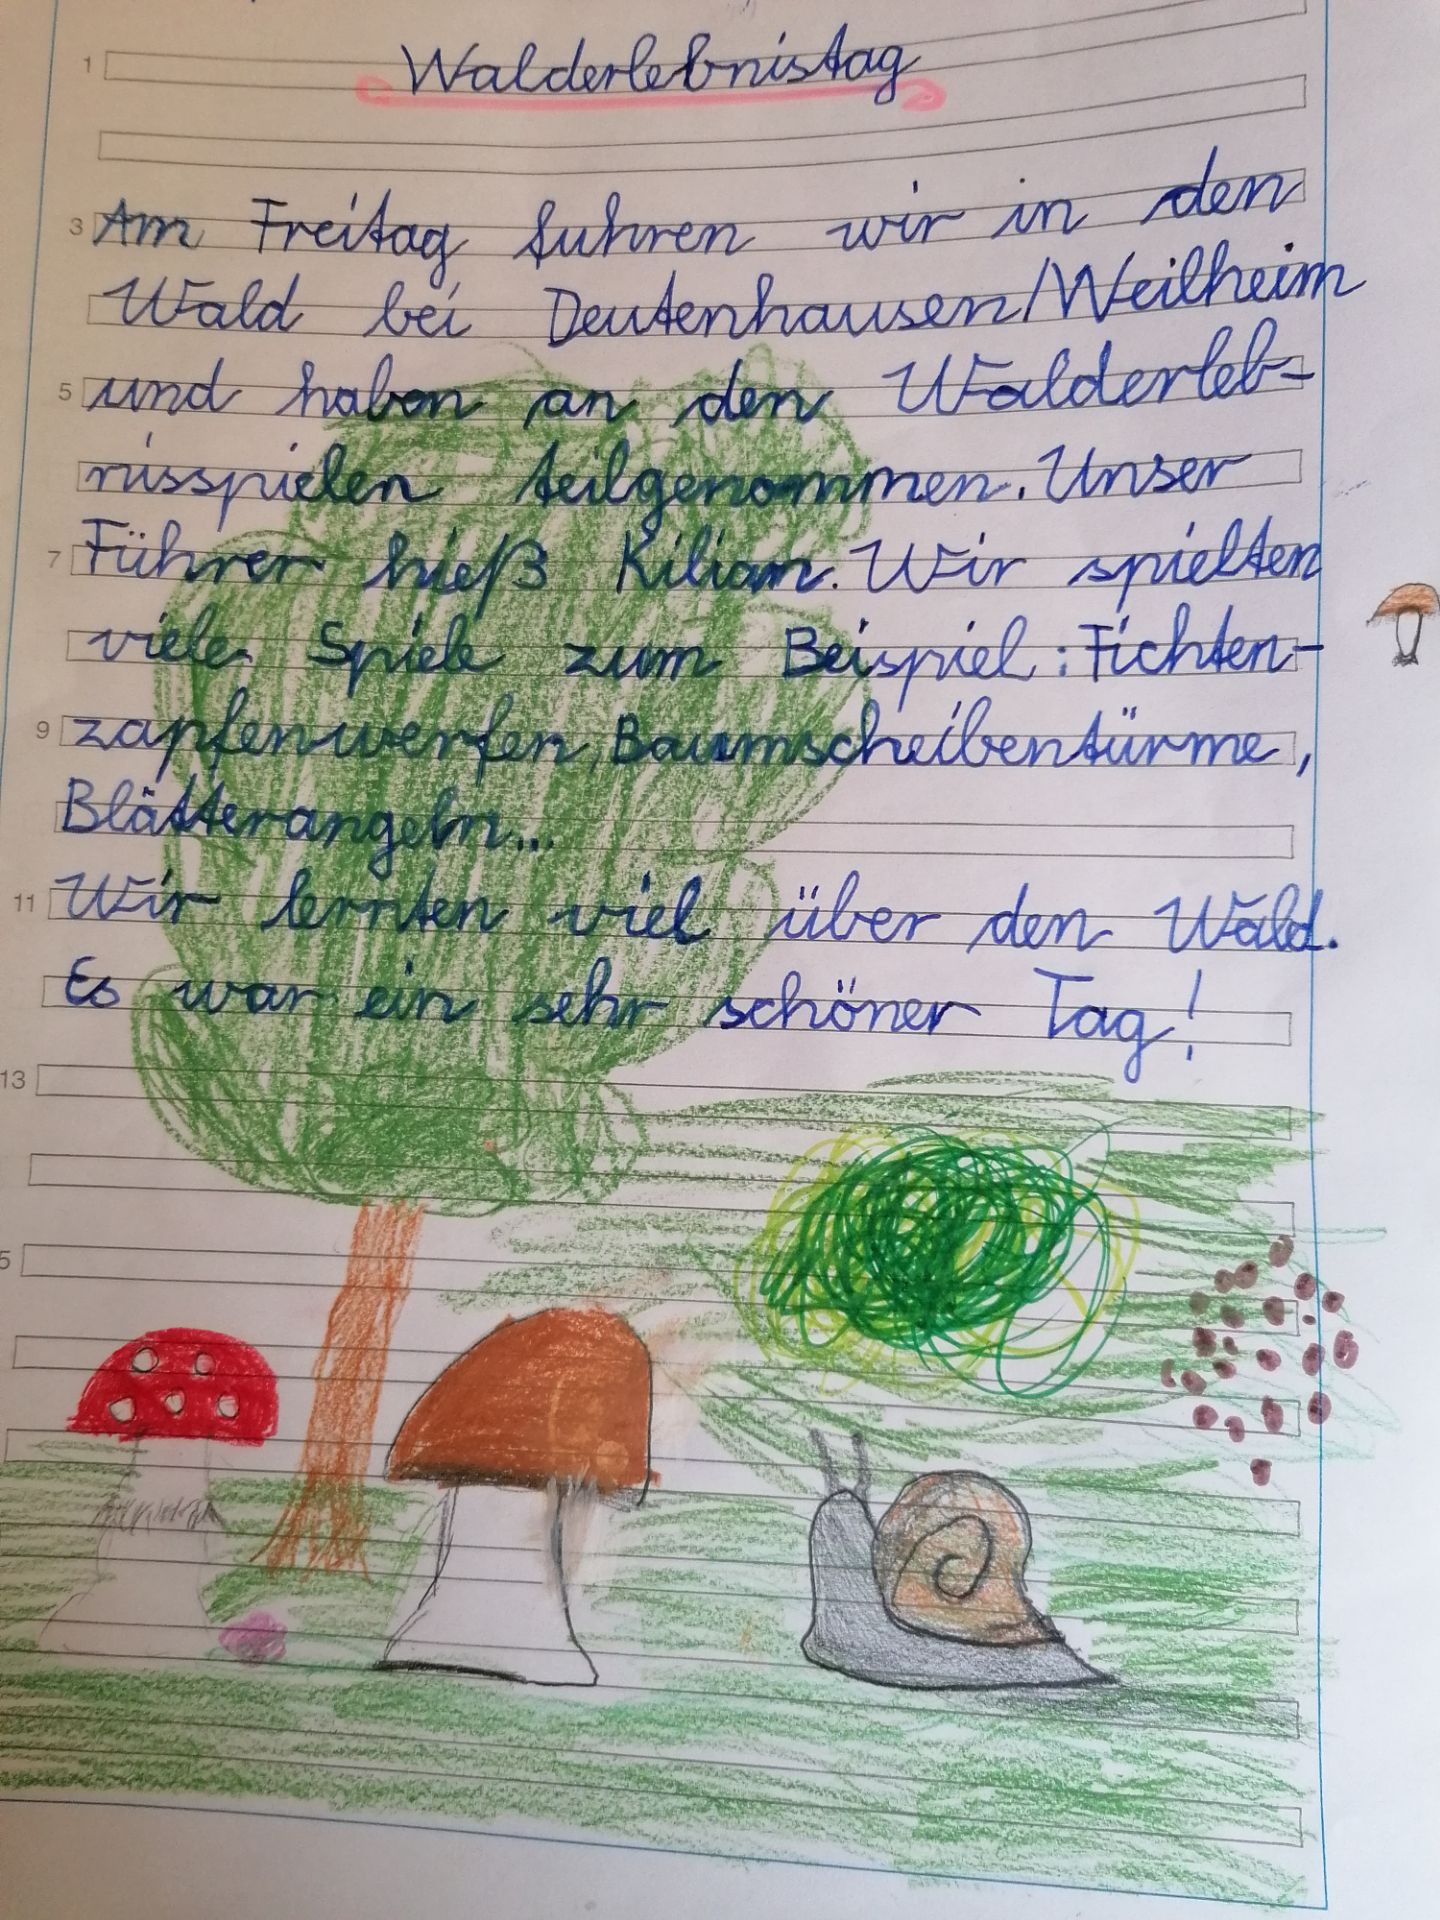 1
Walderlebnistag
3
Am Freitag fuhren wir in den
Wald bei Deutenhausen/Weilheim
5
und haben an den Walderleb-
nisspielen teilgenommen. Unser
7
Führer hieß Kilian. Wir spielten
viele Spiele zum Beispiel: Fichten-
9
zapfenwerfen, Baumscheibentürme,
Blätterangeln...
11
Wir lernten viel über den Wald.
Es war ein sehr schöner Tag!
13
5